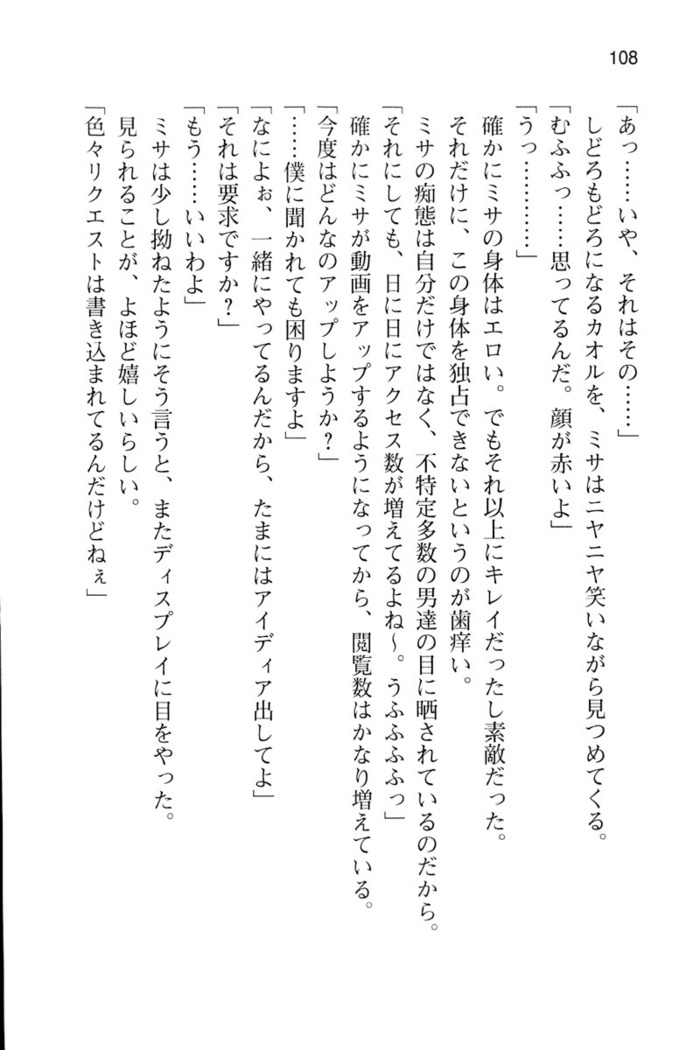 108
「あっ……いや、それはその……」
しどろもどろになるカオルを、ミサはニヤニヤ笑いながら見つめてくる。
「むふふっ……思ってるんだ。顔が赤いよ」
「うっ…………」
確かにミサの身体はエロい。でもそれ以上にキレイだったし素敵だった。
それだけに、この身体を独占できないというのが歯痒い。
ミサの痴態は自分だけではなく、不特定多数の男達の目に晒されているのだから。
「それにしても、日に日にアクセス数が増えてるよね～。うふふふふっ」
確かにミサが動画をアップするようになってから、閲覧数はかなり増えている。
「今度はどんなのアップしようか？」
「……僕に聞かれても困りますよ」
「なによぉ、一緒にやってるんだから、たまにはアイディア出してよ」
「それは要求ですか？」
「もう……いいわよ」
ミサは少し拗ねたようにそう言うと、またディスプレイに目をやった。
見られることが、よほど嬉しいらしい。
「色々リクエストは書き込まれてるんだけどねぇ」